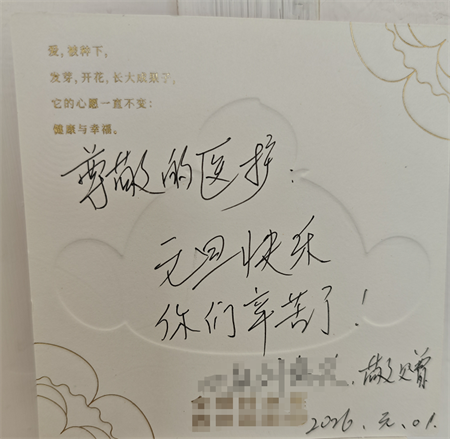 爱,被种下,
发芽,开花,长大或乐于,
它的心愿一直不变:
健康与幸福。
尊敬的医护:
元旦快乐
你们辛苦了!
敬赠
2026.元.01.